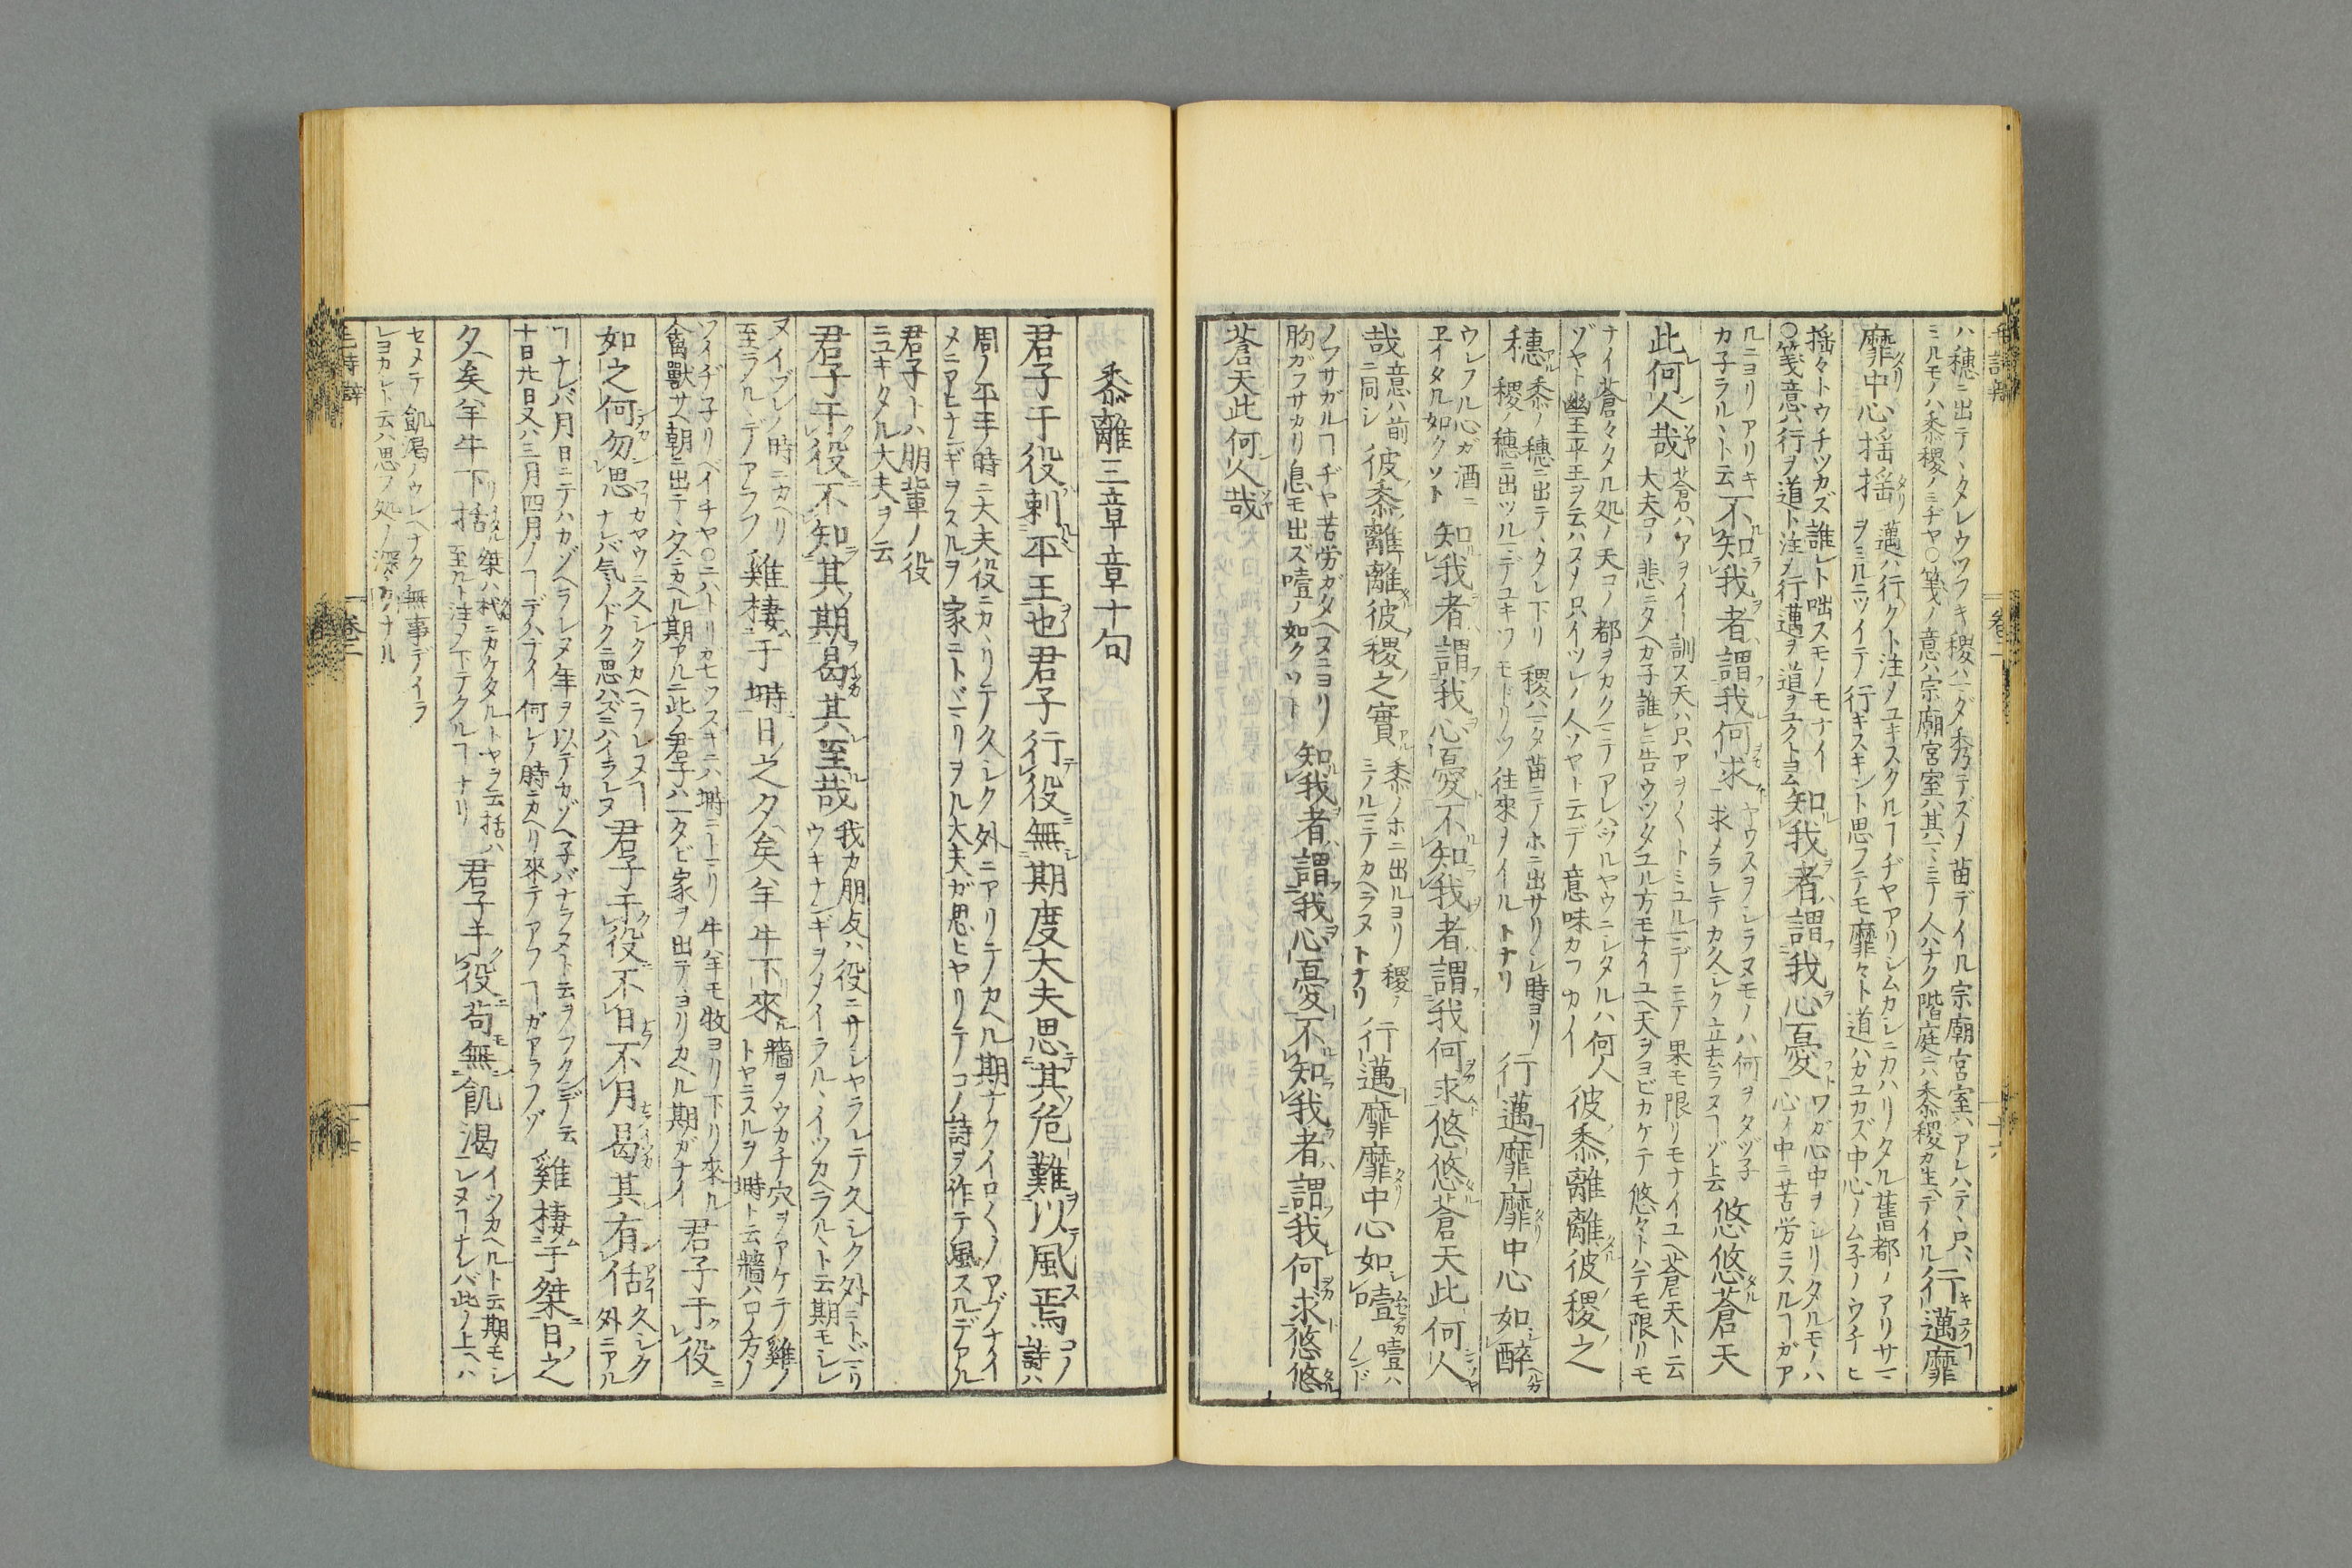 ハ穂ニ出テ、タレウツフキ稷ハマダ秀テズメ苗デイル宗廟宮室ハアレハテ、只ハ行邁靡
ミルモノハ黍稷ノミヂヤ〇箋ノ意ハ宗廟宮室ハ其マヽニテ人ハナク階庭ニハ黍稷カ生ヘテイル
靡中心揺揺 邁ハ行クト注メユキスクルヿヂヤアリシムカシニカハリタル舊都ノアリサマ
ヲミルニツイテ行キスキント思フテモ靡々ト道ハカユカズ中心ノムネノウチヒ
揺々トウチツカズ誰レト咄スモノモナイ知我者謂我心憂ワガ心中ヲシリタルモノハ
〇箋意ハ行ヲ道ト注メ行邁ヲ道ヲユクトヨム心ノ中ニ苦労ニスルヿガア
ルニヨリアリキ不知我者謂我何求ヤウスヲシラヌモノハ何ヲタヅ子
カ子ラルヽト云 求メラレテカ久シク立去ラヌヿゾ上云悠悠蒼天
此何人哉蒼ハアヲイト訓ス天ハ只アヲ〱トミユルマデニテ果モ限リモナイユヘ蒼天ト云
大夫コノ悲ニタヘカ子誰レニ告ウツタユル方モナイユヘ天ヲヨビカケテ悠々トハテモ限リモ
ナイ蒼々タル処ノ天コノ都ヲカクマテアレハツルヤウニシタルハ何人
ゾヤト幽王平王ヲ云ハスメ只イツレノ人ソヤト云デ意味カフカイ彼黍離離彼稷之
穗黍ノ穗ニ出テ、タレ下リ稷ハマタ苗ニテノホニ出サリシ時ヨリ
稷ノ穗ニ出ツルマデユキツモドリツ往來ヲメイルトナリ行邁靡靡中心如醉
ウレフル心ガ酒ニ
ヱイタル如クソト知我者謂我心憂不知我者謂我何求悠悠蒼天此何人
哉意ハ前
ニ同シ彼黍離離彼稷之實黍ノホニ出ルヨリ稷ノ
ミノルマテカヘラヌトナリ行邁靡靡中心如噎噎ハ
ノンド
ノフサガルヿヂヤ苦労ガタヘヌニヨリ
胸ガフサカリ息モ出ズ噎ノ如クソト知我者謂我心憂不知我者謂我何求悠悠
蒼天此何人哉
黍離三章章十句
君子于役刺平王也君子行役無期度大夫思其危難以風焉コノ
詩ハ
周ノ平王ノ時ニ大夫役ニカヽリテ久シク外ニアリテノカヘル期ナクノイロ〱ノアブナイ
メニアヒナンギヲスルヲ家ニトヾマリヲル大夫ガ思ヒヤリテコノ詩ヲ作テ風スルデアル
君子トハ朋輩ノ役
ニユキタル大夫ヲ云
君子于役不知其期曷其至哉我カ朋友ハ役ニサシヤラレテ久シク外ニトヾマリ
ウキナンギヲメイラルヽイツカヘラルヽト云期モシレ
ヌイツレノ時ニカヘリ
至ラルヽデアラフ雞棲于塒日之夕矣羊牛下來牆ヲウカチ穴ヲアケテ雞ノ
トヤニスルヲ塒ト云牆ハ口ノ方ノ
ツイヂ子リベイチヤ〇ニハトリカモフスキニハ塒ニトマリ牛羊モ牧ヨリ下リ來ル
禽獸サヘ朝ニ出テ、夕ニカヘル期アルニ此ノ君子ハ一タビ家ヲ出テヨリカヘル期ガナイ君子于役
如之何勿思カヤウニ久シクカヘラレヌヿ
ナレバ気ノドクニ思ハズニハイラレヌ君子于役不日不月曷其有佸久シク
外ニアル
ヿナレバ月日ニテハカゾヘラレヌ年ヲ以テカゾヘ子バナラヌト云ヲフクンデ云
十日廿日又ハ三月四月ノヿデハナイ何レノ時ニカヘリ來テアフヿガアラフゾ雞棲于桀日之
夕矣羊牛下括桀ハ杙ニカケタルトヤヲ云括ハ
至ルト注メ下テクルヿナリ君子于役苟無飢渇イツカヘルト云期モシ
レヌヿナレバ此ノ上ヘハ
セメテ飢渇ノウレヘナク無事デイラ
レヨカシト云ハ思フ処ノ深キナル